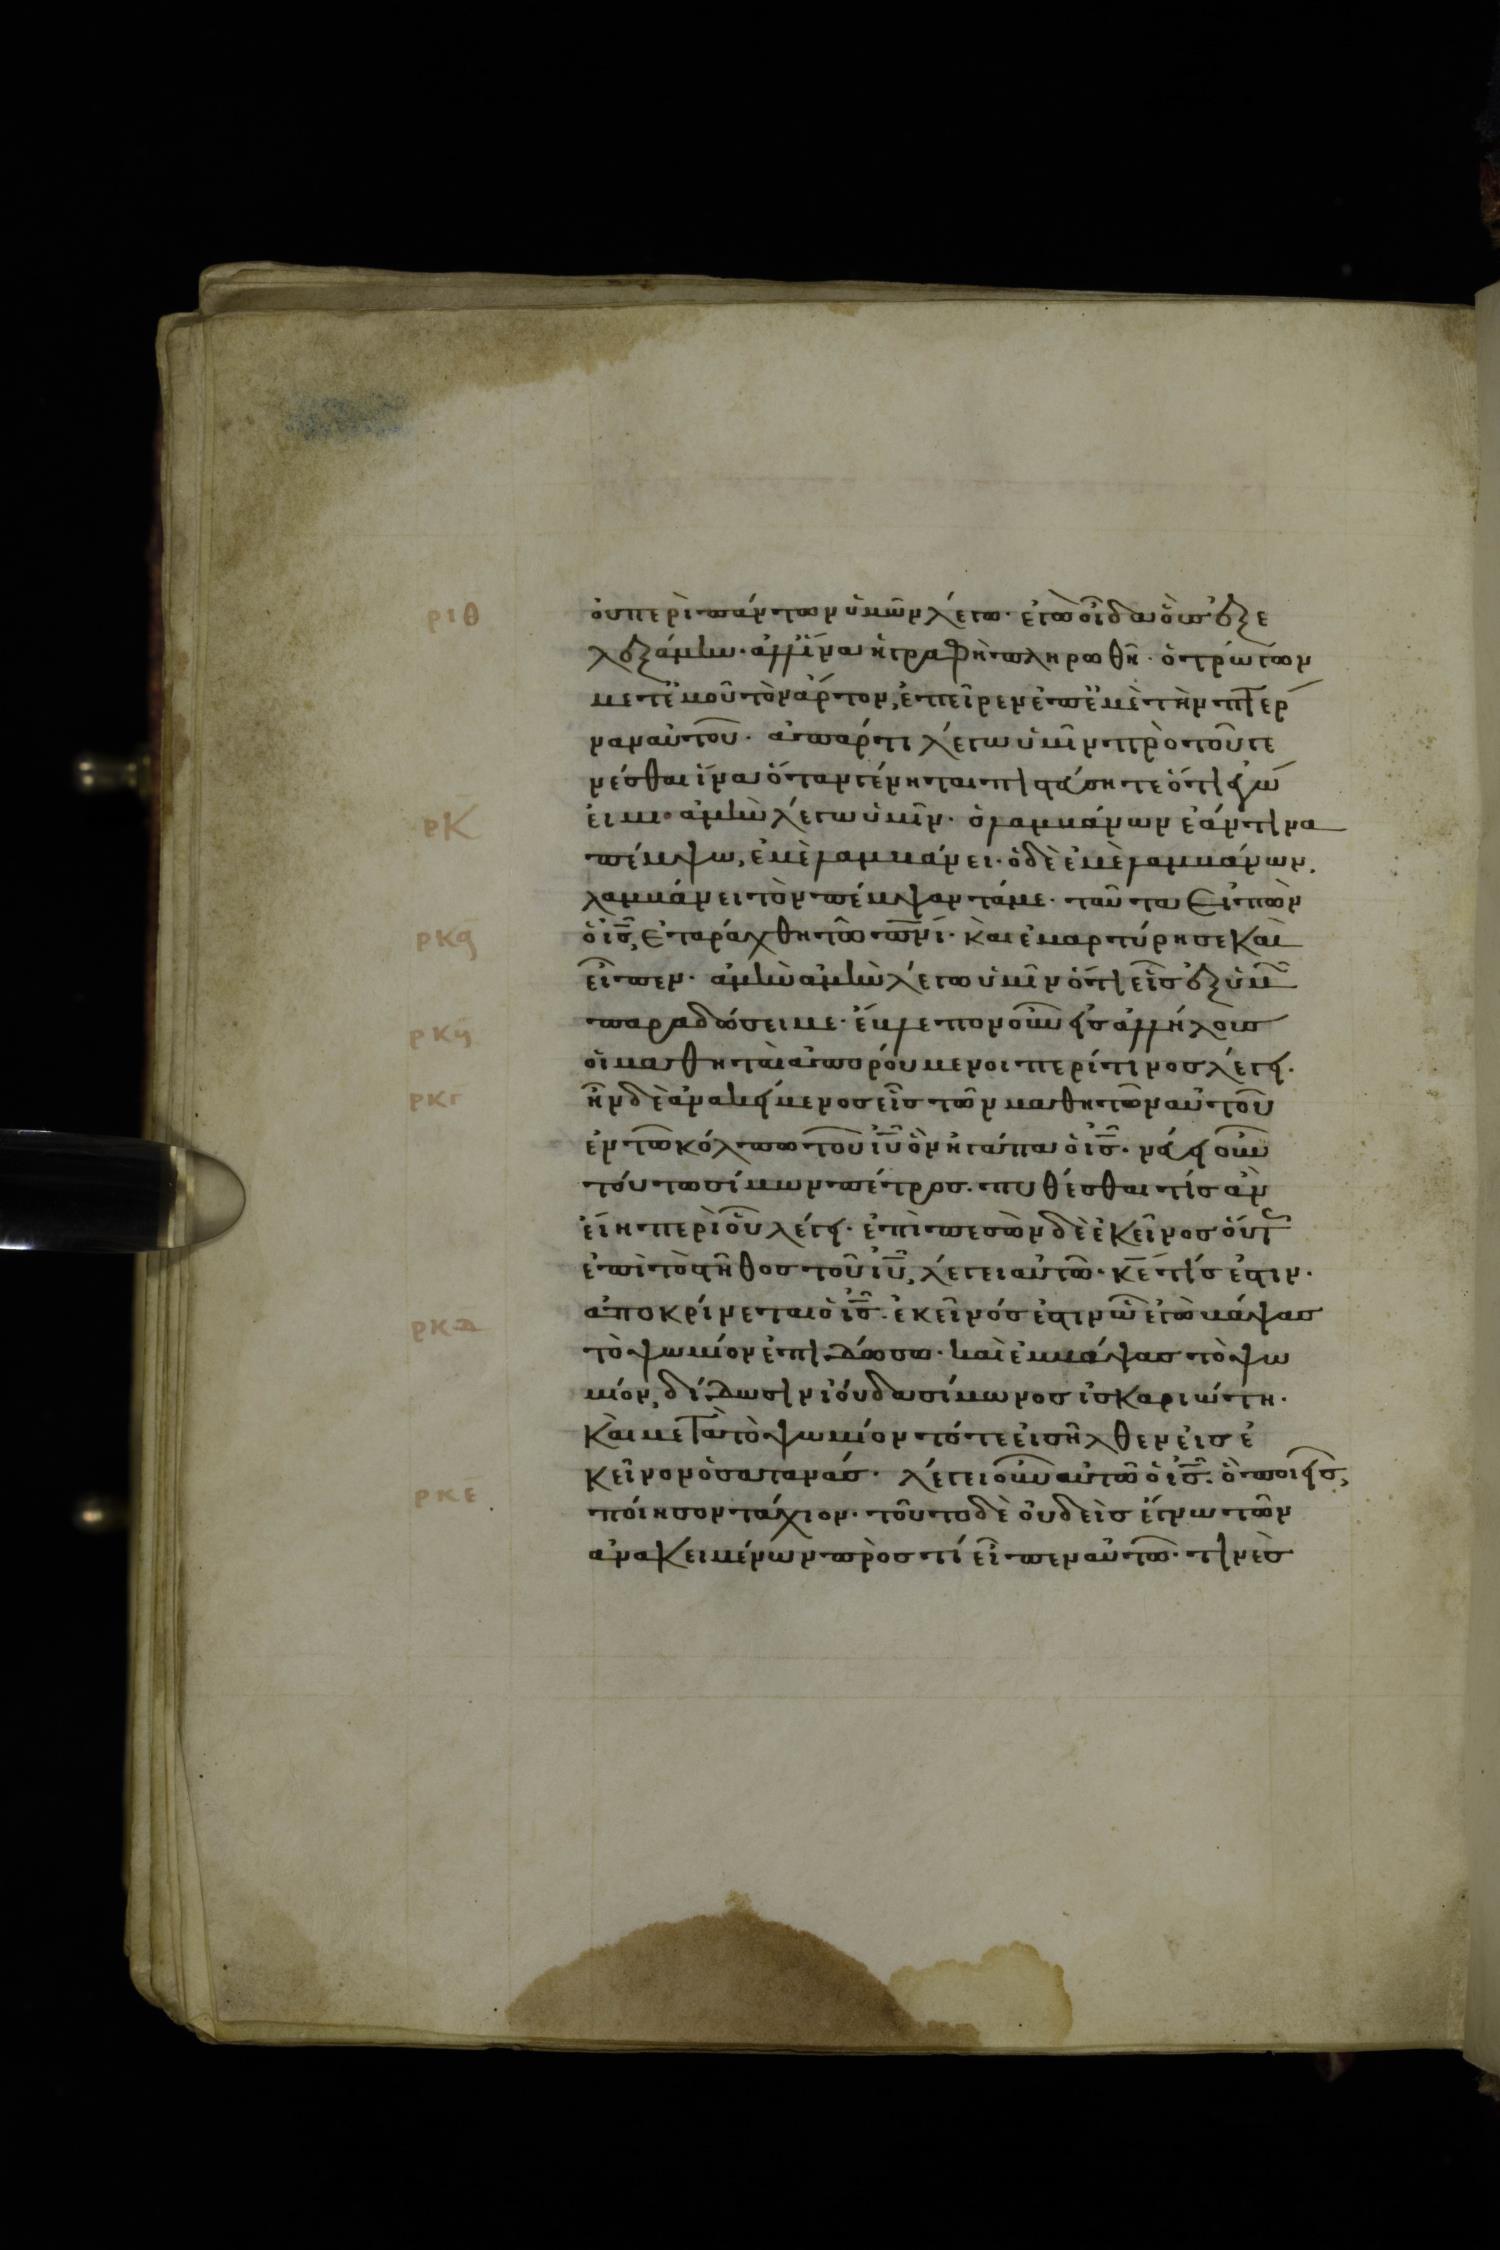 ριθ
οὐ περὶ πάντων ὑμῶν λέγω· ἐγὼ οἶδα οὓς ἐξε
λεξάμην· ἀλλ' ἵνα ἡ γραφὴ πληρωθῆ· ὁ τρώγων
μετ' ἐμοῦ τὸν ἄρτον, ἐπεῖρεν ἐπ' ἐμὲ τὴν πτέρ
ναν αὐτοῦ· ἀπάρτι λέγω ὑμῖν πρὸ τοῦ γε
νέσθαι ἵνα ὅταν γένηται πιστεύσητε ὅτι ἐγώ
ρκ
εἰμι· ἀμὴν λέγω ὑμῖν· ὁ λαμβάνων ἐάν τινα
πέμψω, ἐμὲ λαμβάνει· ὁ δὲ ἐμὲ λαμβάνων,
λαμβάνει τὸν πέμψαντά με· ταῦτα εἰπὼν
ρκα
ὁ ις, ἐταράχθη τῶ πνι· καὶ ἐμαρτύρησε καὶ
εἶπεν· ἀμὴν ἀμὴν λέγω ὑμῖν ὅτι εἷς ἐξ ὑμῶν
ρκβ
παραδώσει με· ἔβλεπον οὖν εἰς ἀλλήλους
οἱ μαθηταὶ ἀπορούμενοι περὶ τίνος λέγει·
ρκγ
ἦν δὲ ἀνακείμενος εἷς τῶν μαθητῶν αὐτοῦ
ἐν τῶ κόλπω τοῦ ιυ ὃν ἠγάπα ὁ ις· νεύει οὖν
τούτω σίμων πέτρος· πυθέσθαι τίς ἂν
εἴη περὶ οὗ λέγει· ἐπιπεσὼν δὲ ἐκεῖνος οὕτως
ἐπὶ τὸ στῆθος τοῦ ιυ, λέγει αὐτῶ· κε τίς ἐστιν·
ἀποκρίνεται ὁ ις· ἐκεῖνός ἐστιν ὧ ἐγὼ βάψας
ρκδ
τὸ ψωμίον ἐπιδώσω· καὶ ἐμβάψας τὸ ψω
μίον, δίδωσιν ἰούδα σίμωνος ἰσκαριώτη·
καὶ μετὰ τὸ ψωμίον τότε εἰσῆλθεν εἰς ἐ
κεῖνον ὁ σατανάς· λέγει οὖν αὐτῶ ὁ ις· ὃ ποιεῖς,
ρκε
ποίησον τάχιον· τοῦτο δὲ οὐδεὶς ἔγνω τῶν
ἀνακειμένων πρὸς τί εἶπεν αὐτῶ· τινὲς